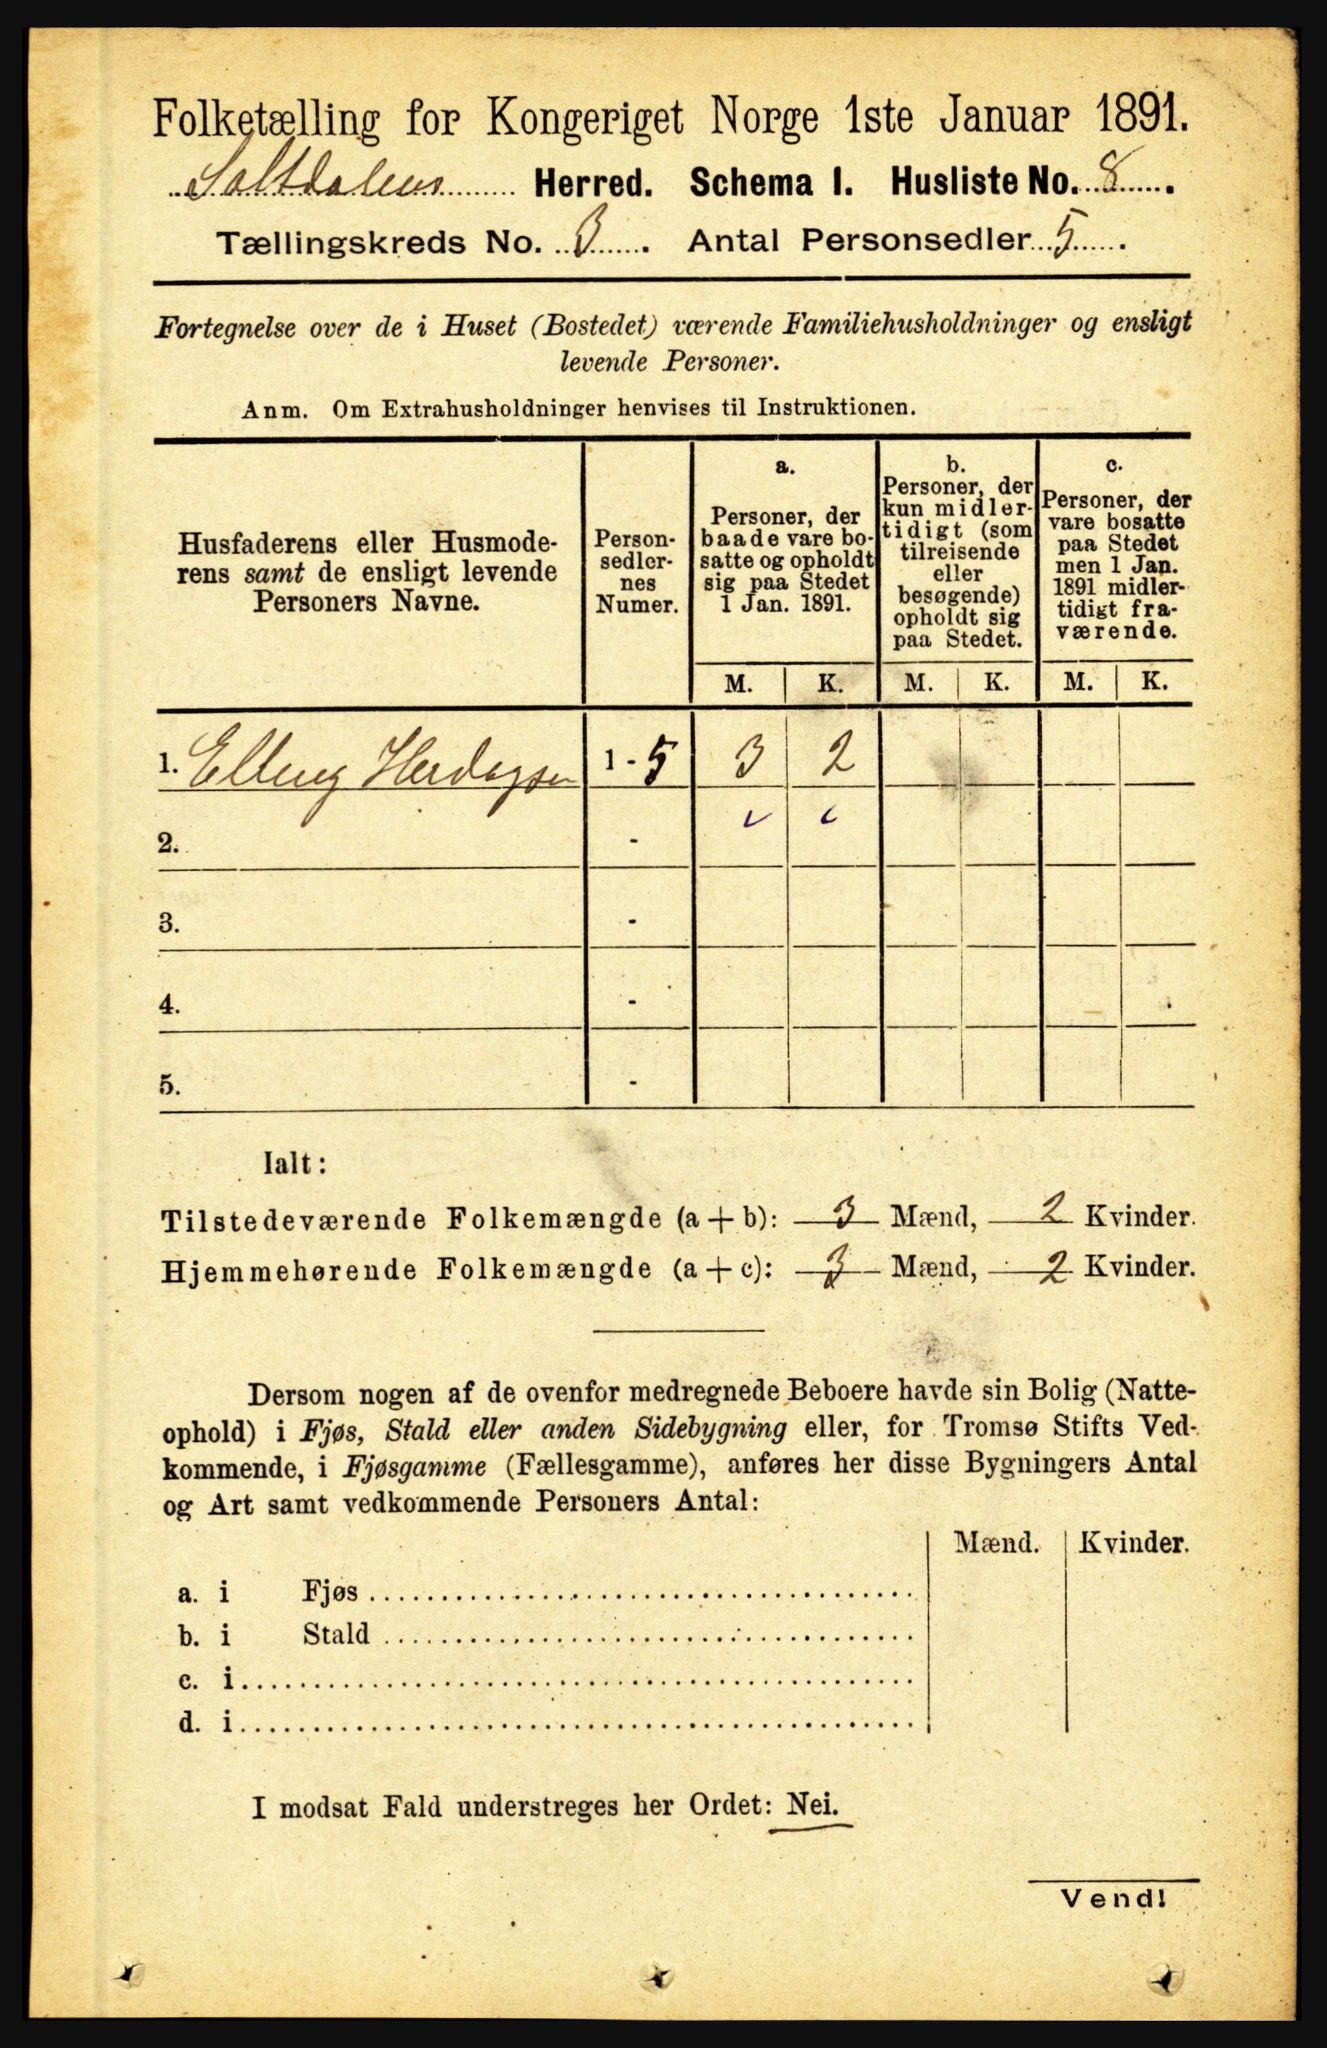 Folketælling for Kongeriget Norge 1ste Januar 1891.
Saltdalens Herred. Schema I. Husliste No. 8.
Tællingskreds No. 3. Antal Personsedler 5.
Fortegnelse over de i Huset (Bostedet) værende Familiehusholdninger og ensligt
levende Personer.
Anm. Om Extrahusholdninger henvises til Instruktionen.
Husfaderens eller Husmode-
rens samt de ensligt levende
Personers Navne.
Person-
sedler-
nes
Numer.
a.
Personer, der
baade vare bo-
satte og opholdt
sig paa Stedet
1 Jan. 1891.
b.
Personer, der
kun midler-
tidigt (som
tilreisende
eller
besøgende)
opholdt sig
paa Stedet.
c.
Personer, der
vare bosatte
paa Stedet
men 1 Jan.
1891 midler-
tidigt fra-
værende.
M. K. M. K. M. K.
1. Elling Herdagsen 1 - 5 3 2
2. -
3. -
4. -
5. -
Ialt:
Tilstedeværende Folkemængde (a + b): 3 Mænd, 2 Kvinder.
Hjemmehørende Folkemængde (a + c): 3 Mænd, 2 Kvinder.
Dersom nogen af de ovenfor medregnede Beboere havde sin Bolig (Natte-
ophold) i Fjøs, Stald eller anden Sidebygning eller, for Tromsø Stifts Ved-
kommende, i Fjøsgamme (Fællesgamme), anføres her disse Bygningers Antal
og Art samt vedkommende Personers Antal:
Mænd. Kvinder.
a. i Fjøs
b. i Stald
c. i
d. i
I modsat Fald understreges her Ordet: Nei.
Vend!